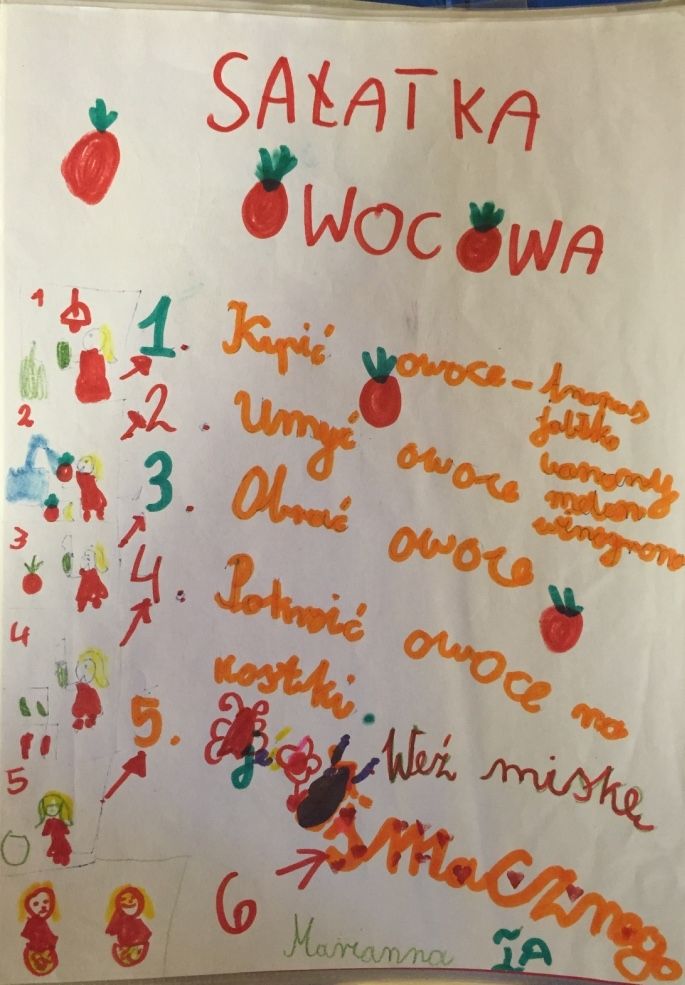 SAŁATKA
OWOCOWA
1. Kupić owoce - Ananas
jabłko
banany
melon
winogrono
2. Umyć owoce
3. Obrać owoce
4. Pokroić owoce na
kostki.
5. Weź miskę
6 Smacznego
Marianna IA
1
2
3
4
5